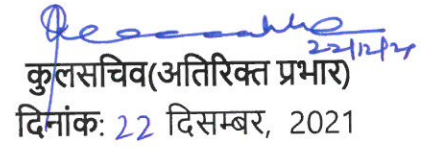 22/12/21
कुलसचिव(अतिरिक्त प्रभार)
दिनांक: 22 दिसम्बर, 2021